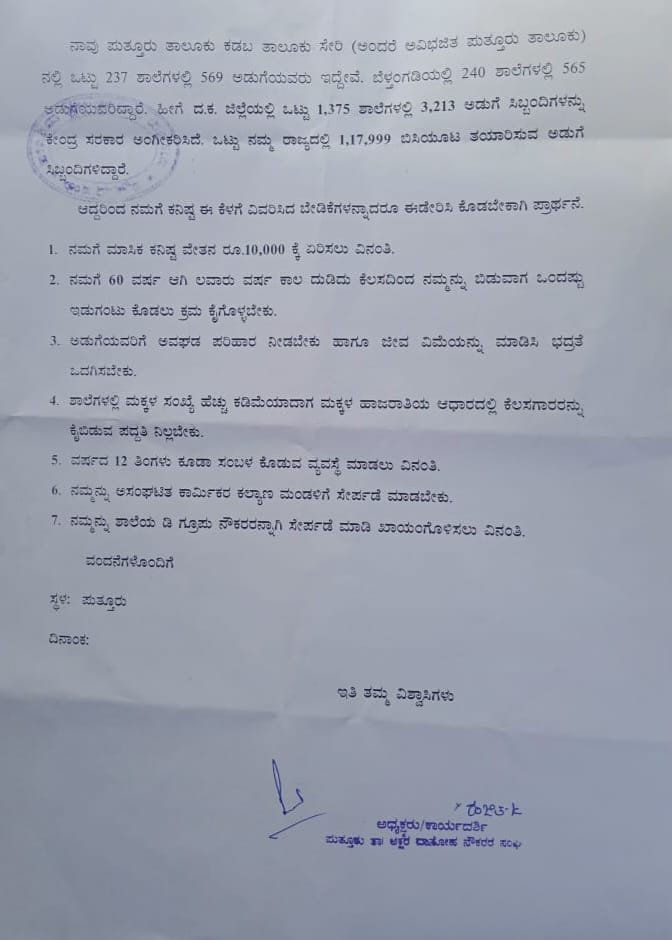 ನಾವು ಪುತ್ತೂರು ತಾಲೂಕು ಕಡಬ ತಾಲೂಕು ಸೇರಿ (ಅಂದರೆ ಅವಿಭಜಿತ ಪುತ್ತೂರು ತಾಲೂಕು)
ನಲ್ಲಿ ಒಟ್ಟು 237 ಶಾಲೆಗಳಲ್ಲಿ 569 ಅಡುಗೆಯವರು ಇದ್ದೇವೆ. ಬೆಳ್ತಂಗಡಿಯಲ್ಲಿ 240 ಶಾಲೆಗಳಲ್ಲಿ 565
ಅಡುಗೆಯವರಿದ್ದಾರೆ. ಹೀಗೆ ದ.ಕ. ಜಿಲ್ಲೆಯಲ್ಲಿ ಒಟ್ಟು 1,375 ಶಾಲೆಗಳಲ್ಲಿ 3,213 ಅಡುಗೆ ಸಿಬ್ಬಂದಿಗಳನ್ನು
ಕೇಂದ್ರ ಸರಕಾರ ಅಂಗೀಕರಿಸಿದೆ. ಒಟ್ಟು ನಮ್ಮ ರಾಜ್ಯದಲ್ಲಿ 1,17,999 ಬಿಸಿಯೂಟ ತಯಾರಿಸುವ ಅಡುಗೆ
ಸಿಬ್ಬಂದಿಗಳಿದ್ದಾರೆ.
ಆದ್ದರಿಂದ ನಮಗೆ ಕನಿಷ್ಟ ಈ ಕೆಳಗೆ ವಿವರಿಸಿದ ಬೇಡಿಕೆಗಳನ್ನಾದರೂ ಈಡೇರಿಸಿ ಕೊಡಬೇಕಾಗಿ ಪ್ರಾರ್ಥನೆ.
1. ನಮಗೆ ಮಾಸಿಕ ಕನಿಷ್ಟ ವೇತನ ರೂ.10,000 ಕ್ಕೆ ಏರಿಸಲು ವಿನಂತಿ.
2. ನಮಗೆ 60 ವರ್ಷ ಆಗಿ ಲವಾರು ವರ್ಷ ಕಾಲ ದುಡಿದು ಕೆಲಸದಿಂದ ನಮ್ಮನ್ನು ಬಿಡುವಾಗ ಒಂದಷ್ಟು
ಇಡುಗಂಟು ಕೊಡಲು ಕ್ರಮ ಕೈಗೊಳ್ಳಬೇಕು.
3. ಅಡುಗೆಯವರಿಗೆ ಅವಘಡ ಪರಿಹಾರ ನೀಡಬೇಕು ಹಾಗೂ ಜೀವ ವಿಮೆಯನ್ನು ಮಾಡಿಸಿ ಭದ್ರತೆ
ಒದಗಿಸಬೇಕು.
4. ಶಾಲೆಗಳಲ್ಲಿ ಮಕ್ಕಳ ಸಂಖ್ಯೆ ಹೆಚ್ಚು ಕಡಿಮೆಯಾದಾಗ ಮಕ್ಕಳ ಹಾಜರಾತಿಯ ಆಧಾರದಲ್ಲಿ ಕೆಲಸಗಾರರನ್ನು
ಕೈಬಿಡುವ ಪದ್ದತಿ ನಿಲ್ಲಬೇಕು.
5. ವರ್ಷದ 12 ತಿಂಗಳು ಕೂಡಾ ಸಂಬಳ ಕೊಡುವ ವ್ಯವಸ್ಥೆ ಮಾಡಲು ವಿನಂತಿ.
6. ನಮ್ಮನ್ನು ಅಸಂಘಟಿತ ಕಾರ್ಮಿಕರ ಕಲ್ಯಾಣ ಮಂಡಳಿಗೆ ಸೇರ್ಪಡೆ ಮಾಡಬೇಕು.
7. ನಮ್ಮನ್ನು ಶಾಲೆಯ ಡಿ ಗ್ರೂಪು ನೌಕರರನ್ನಾಗಿ ಸೇರ್ಪಡೆ ಮಾಡಿ ಖಾಯಂಗೊಳಿಸಲು ವಿನಂತಿ.
ವಂದನೆಗಳೊಂದಿಗೆ
ಸ್ಥಳ: ಪುತ್ತೂರು
ದಿನಾಂಕ:
ಇತಿ ತಮ್ಮ ವಿಶ್ವಾಸಿಗಳು
ಅಧ್ಯಕ್ಷರು/ಕಾರ್ಯದರ್ಶಿ
ಪುತ್ತೂರು ತಾ| ಅಕ್ಷರ ದಾಸೋಹ ನೌಕರರ ಸಂಘ